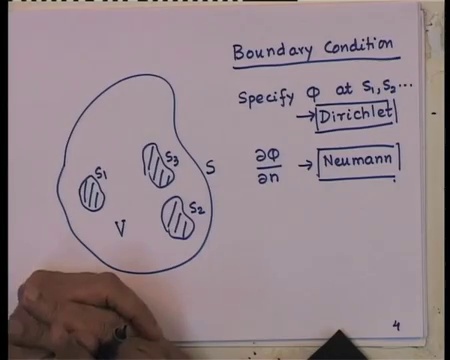 Boundary Condition
Specify Φ at S1, S2 ...
→ Dirichlet
∂Φ/∂n → Neumann
S1
S3
S
S2
V
4